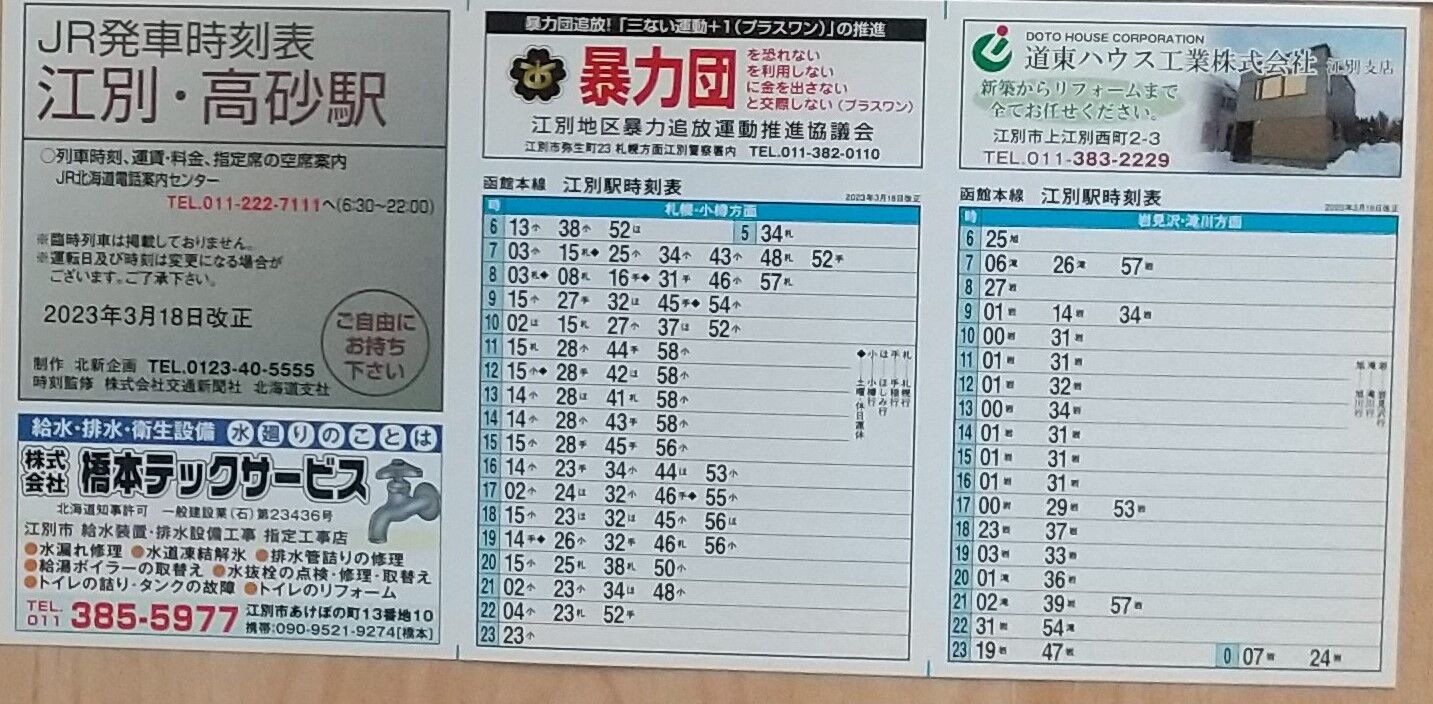 JR発車時刻表
江別・高砂駅
○列車時刻、運賃・料金、指定席の空席案内
JR北海道電話案内センター
TEL.011-222-7111へ(6:30~22:00)
※臨時列車は掲載しておりません。
※運転日及び時刻は変更になる場合が
ございます。ご了承下さい。
2023年3月18日改正
ご自由に
お持ち
下さい
制作 北新企画 TEL.0123-40-5555
時刻監修 株式会社交通新聞社 北海道支社
給水・排水・衛生設備 水廻りのことは
株式会社 橋本テックサービス
北海道知事許可 一般建設業(石)第23436号
江別市 給水装置・排水設備工事 指定工事店
●水漏れ修理 ●水道凍結解氷 ●排水管詰りの修理
●給湯ボイラーの取替え ●水抜栓の点検・修理・取替え
●トイレの詰り・タンクの故障 ●トイレのリフォーム
TEL.011 385-5977 江別市あけぼの町13番地10
携帯:090-9521-9274[橋本]
暴力団追放!「三ない運動+1(プラスワン)」の推進
暴力団
を恐れない
を利用しない
に金を出さない
と交際しない(プラスワン)
江別地区暴力追放運動推進協議会
江別市弥生町23 札幌方面江別警察署内 TEL.011-382-0110
函館本線 江別駅時刻表
2023年3月18日改正
時 札幌・小樽方面
6 13小 38小 52ほ 5 34札
7 03小 15札◆ 25小 34小 43小 48札 52手
8 03札◆ 08札 16手◆ 31手 46小 57札
9 15小 27手 32ほ 45手◆ 54小
10 02ほ 15札 27小 37ほ 52小
11 15札 28小 44手 58小
12 15小◆ 28手 42ほ 58小
13 14小 28ほ 41札 58小
14 14小 28小 43手 58小
15 15小 28手 45手 56小
16 14小 23手 34小 44ほ 53小
17 02小 24ほ 32小 46手◆ 55小
18 15小 23ほ 32ほ 45小 56ほ
19 14手◆ 26小 32手 46札 56小
20 15小 25札 38札 50小
21 02小 23小 34ほ 48小
22 04小 23札 52手
23 23小
札…札幌行
手…手稲行
ほ…ほしみ行
小…小樽行
◆…土曜・休日運休
DOTO HOUSE CORPORATION
道東ハウス工業株式会社 江別支店
新築からリフォームまで
全てお任せください。
江別市上江別西町2-3
TEL.011-383-2229
函館本線 江別駅時刻表
2023年3月18日改正
時 岩見沢・滝川方面
6 25旭
7 06滝 26滝 57岩
8 27岩
9 01岩 14岩 34岩
10 00岩 31岩
11 01岩 31岩
12 01岩 32岩
13 00岩 34岩
14 01岩 31岩
15 01岩 31岩
16 01岩 31岩
17 00岩 29岩 53岩
18 23岩 37岩
19 03岩 33岩
20 01滝 36岩
21 02滝 39岩 57岩
22 31岩 54滝
23 19岩 47岩 0 07岩 24岩
岩…岩見沢行
滝…滝川行
旭…旭川行